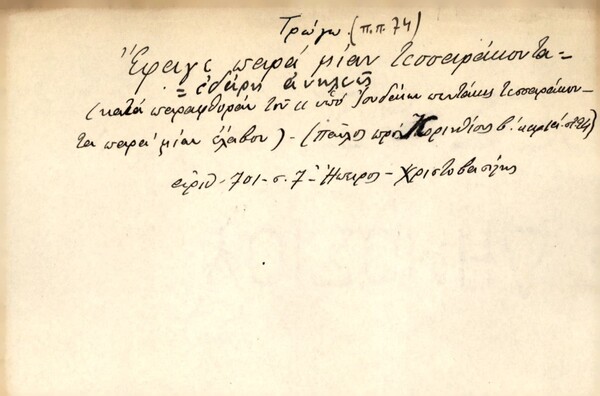 Τρώγω (π.π. 74)
Ἔφαγε παρά μίαν τεσσαράκοντα =
= ἐδάρη ἀνηλεῶς
(κατά παραφθοράν τοῦ ὑπό Ἰουδαίων πεντάκις τεσσαράκον-
τα παρά μίαν ἔλαβον) - (Παῦλος πρός Κορινθίους β. κεφ. ια. στ. 24)
ἀριθ - 701 - σ. 7 - Ἤπειρος - Χριστοβασίλης